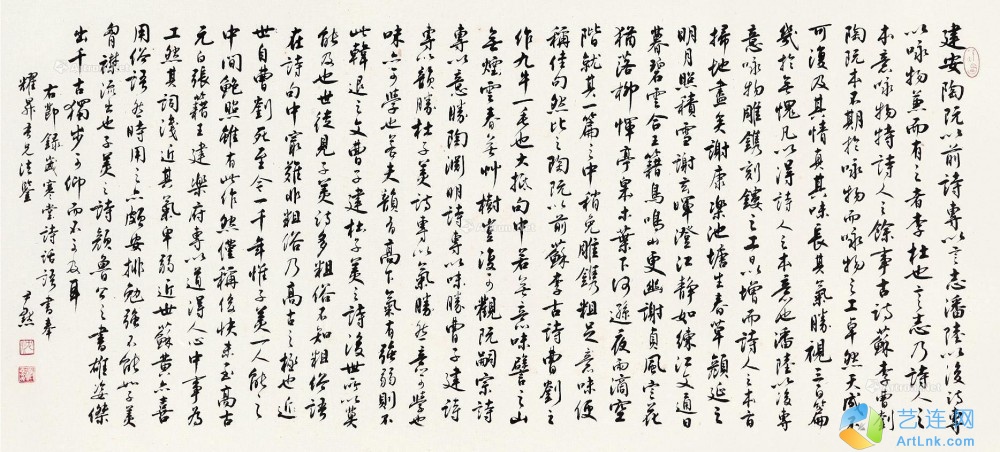 建安陶阮以前詩專以言志潘陸以後詩專
以詠物兼而有之者李杜也言志乃詩人之
本意詠物特詩人之餘事古詩蘇李曹劉
陶阮本不期於詠物而詠物之工卓然天成不
可復及其情真其味長其氣勝視三百篇
幾於無愧凡以得詩人之本意也潘陸以後專
意詠物雕鐫刻鏤之工日以增而詩人之本旨
掃地盡矣謝康樂池塘生春草顏延之
明月照積雪謝玄暉澄江靜如練江文通日
暮碧雲合王籍鳥鳴山更幽謝貞風定花
猶落柳惲亭皋木葉下何遜夜雨滴空
階就其一篇之中稍免雕鐫粗足意味便
稱佳句然比之陶阮以前蘇李古詩曹劉之
作九牛一毛也大抵句中若無意味譬之山
無煙雲春無艸樹豈復可觀阮嗣宗詩
專以意勝陶淵明詩專以味勝曹子建詩
專以韻勝杜子美詩專以氣勝然意可學也
味亦可學也若夫韻有高下氣有強弱則不
此韓退之文曹子建杜子美之詩後世所以莫
能及也世徒見子美詩多粗俗不知粗俗語
在詩句中最難非粗俗乃高古之極也近
世自曹劉死至今一千年惟子美一人能之
中間鮑照雖有此作然僅稱俊快未至高古
元白張籍王建樂府專以道得人心中事為
工然其詞淺近其氣卑弱近世蘇黃亦喜
用俗語然時用之亦頗安排勉強不能如子美
胷襟流出也子美之詩顏魯公之書雄姿傑
出千古獨步可仰而不可及耳
右節錄歲寒堂詩話語書奉
耀鼎吾兄法鑒
尹默
艺连网
ArtLnk.com